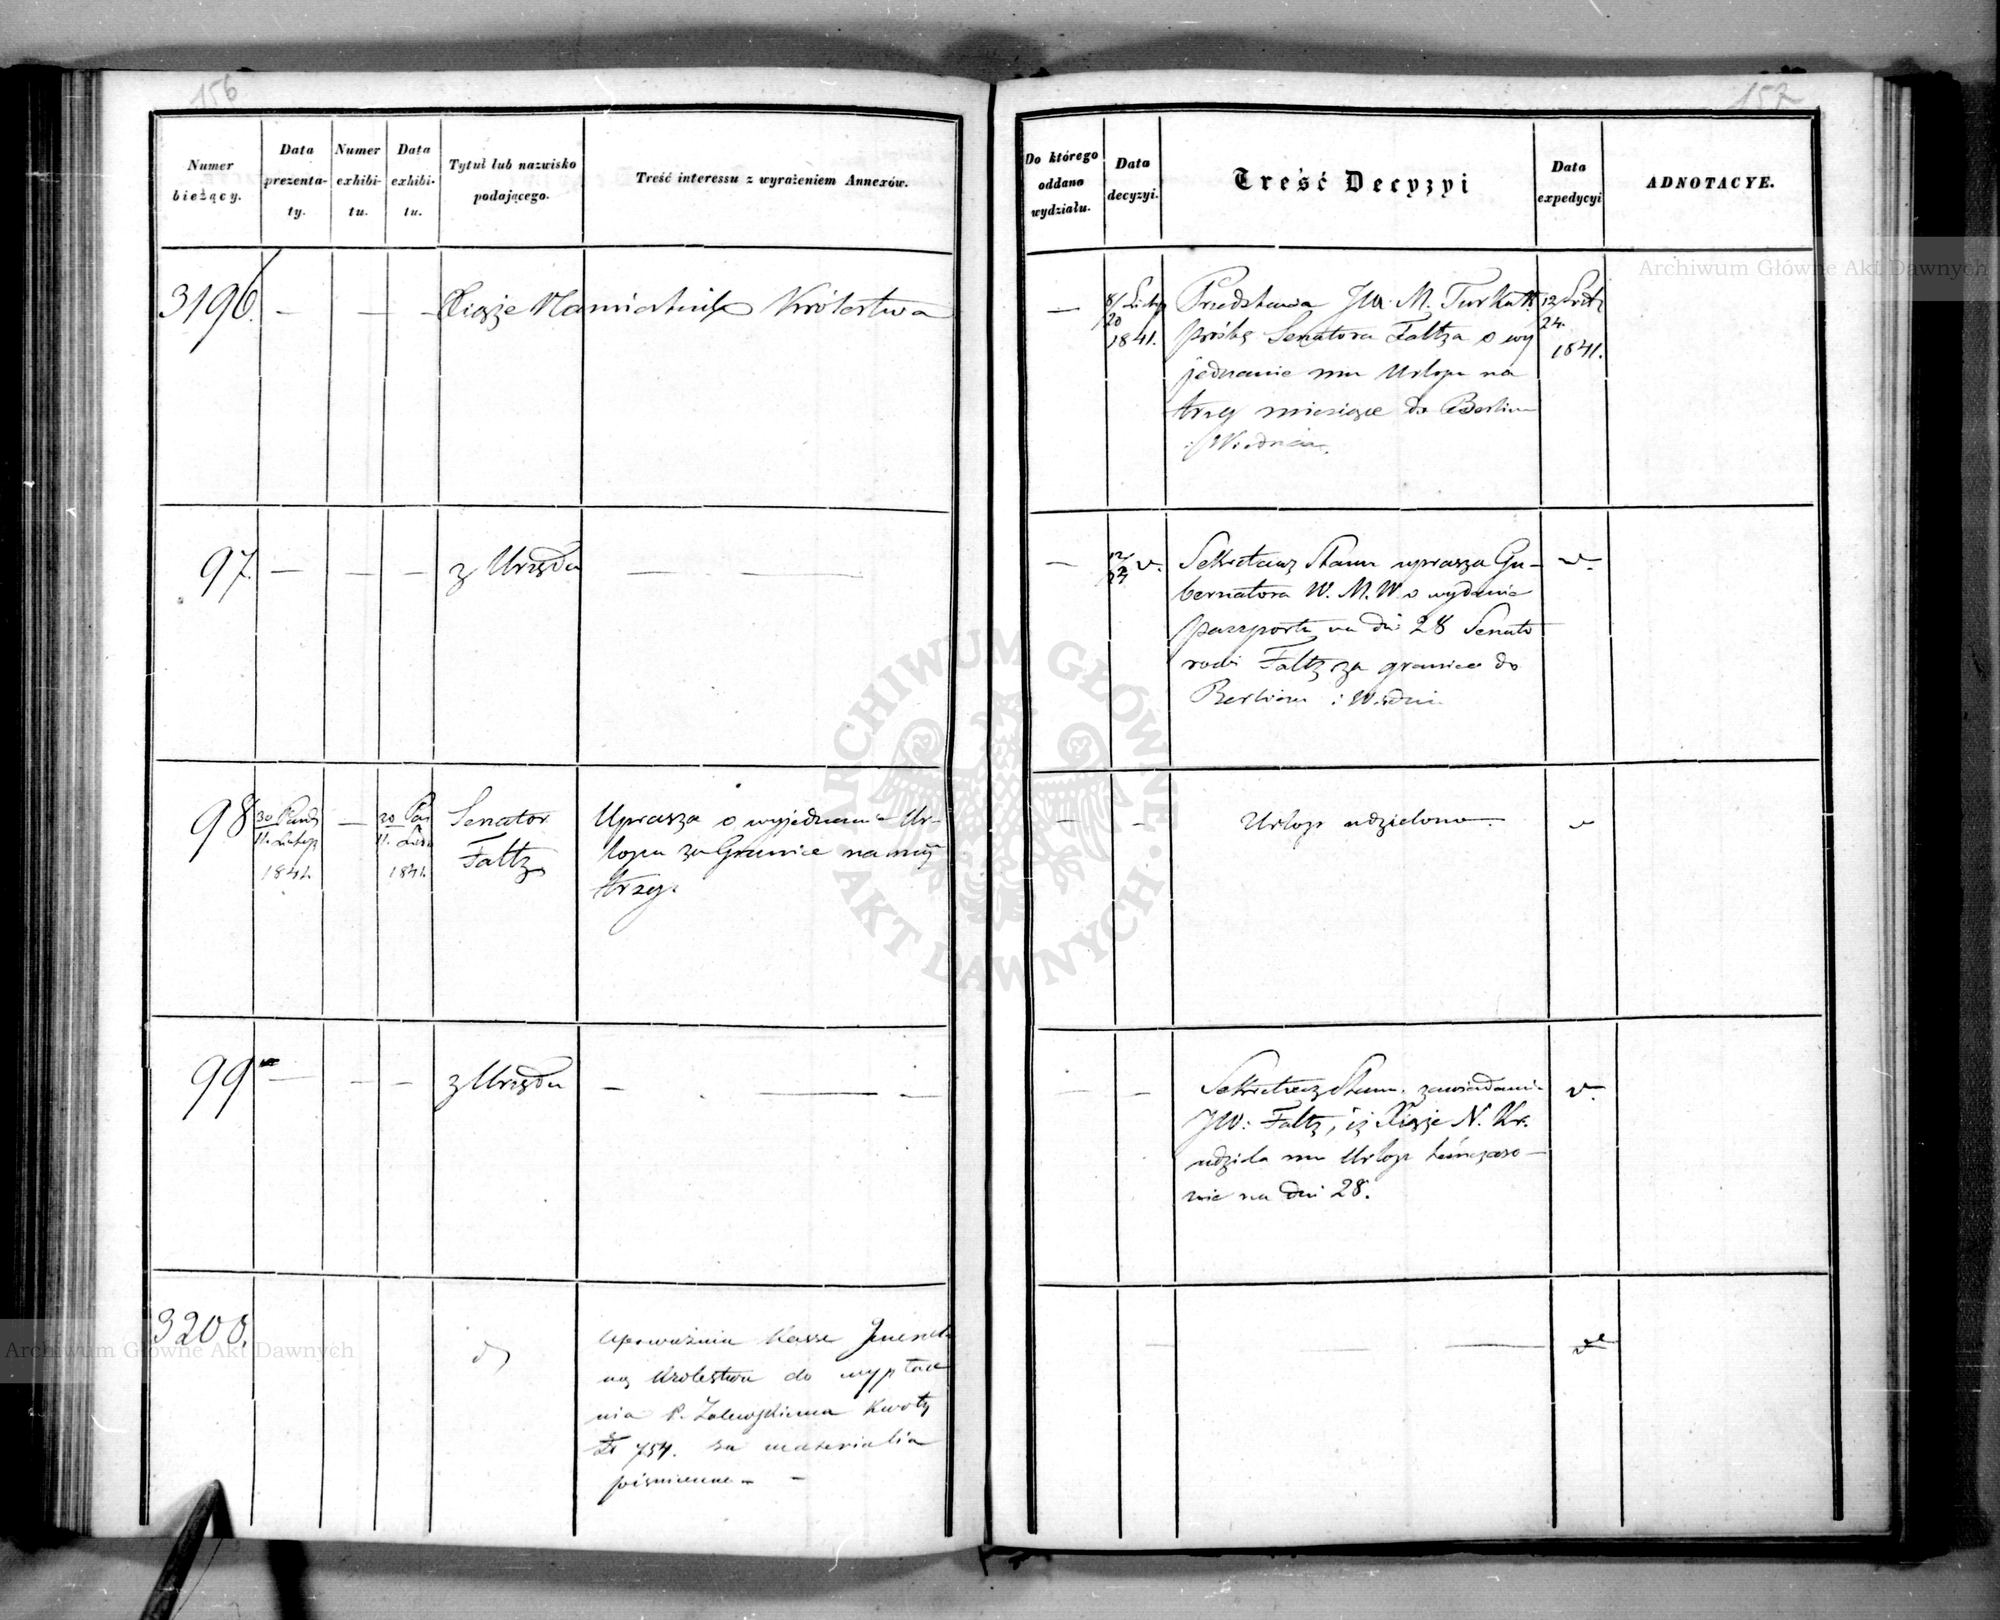 156
Numer bieżący.
Data prezentaty.
Numer exhibitu.
Data exhibitu.
Tytuł lub nazwisko podającego.
Treść interessu z wyrażeniem Annexów.
3196.
— — —
Xiąże Namiestnik Królestwa
97.
— — —
z Urzędu
—
98
30 Paźdz
11. Listop
1841.
—
30 Paź
11. Lis
1841.
Senator
Faltz
Uprasza o wyjednanie Ur-
lopu za Granicę na
trzy.
99
— — —
z Urzędu
— — —
3200.
Upoważnia Kassę Jeneral
ną Królestwa do wypłace
nia P. Zalewskiemu Kwoty
Zł 754. za materialia
piśmienne —
157
Do którego oddano wydziału.
Data decyzyi.
Treść Decyzyi
Data expedycyi
ADNOTACYE.
—
8/ Listop
20
1841.
Przedstawia JW. M. Turkułł.
prośbę Senatora Faltza o wy
jednanie mu Urlopu na
trzy miesiące do Berlina
i Wiednia.
12
24.
1841.
—
12
24
v.
Sekretarz Stanu uprasza Gu-
bernatora W. M. W. o wydanie
paszportu na dni 28 Senato
rowi Faltz za granicę do
Berlina i Wiednia
v.
— —
Urlop udzielono.
v
— —
Sekretarz Stanu zawiadamia
JW: Faltz, iż Xiąże N. Kr.
udziela mu Urlop
nie na dni 28.
v.
— —
v
ARCHIWUM GŁÓWNE AKT DAWNYCH
Archiwum Główne Akt Dawnych
Archiwum Główne Akt Dawnych